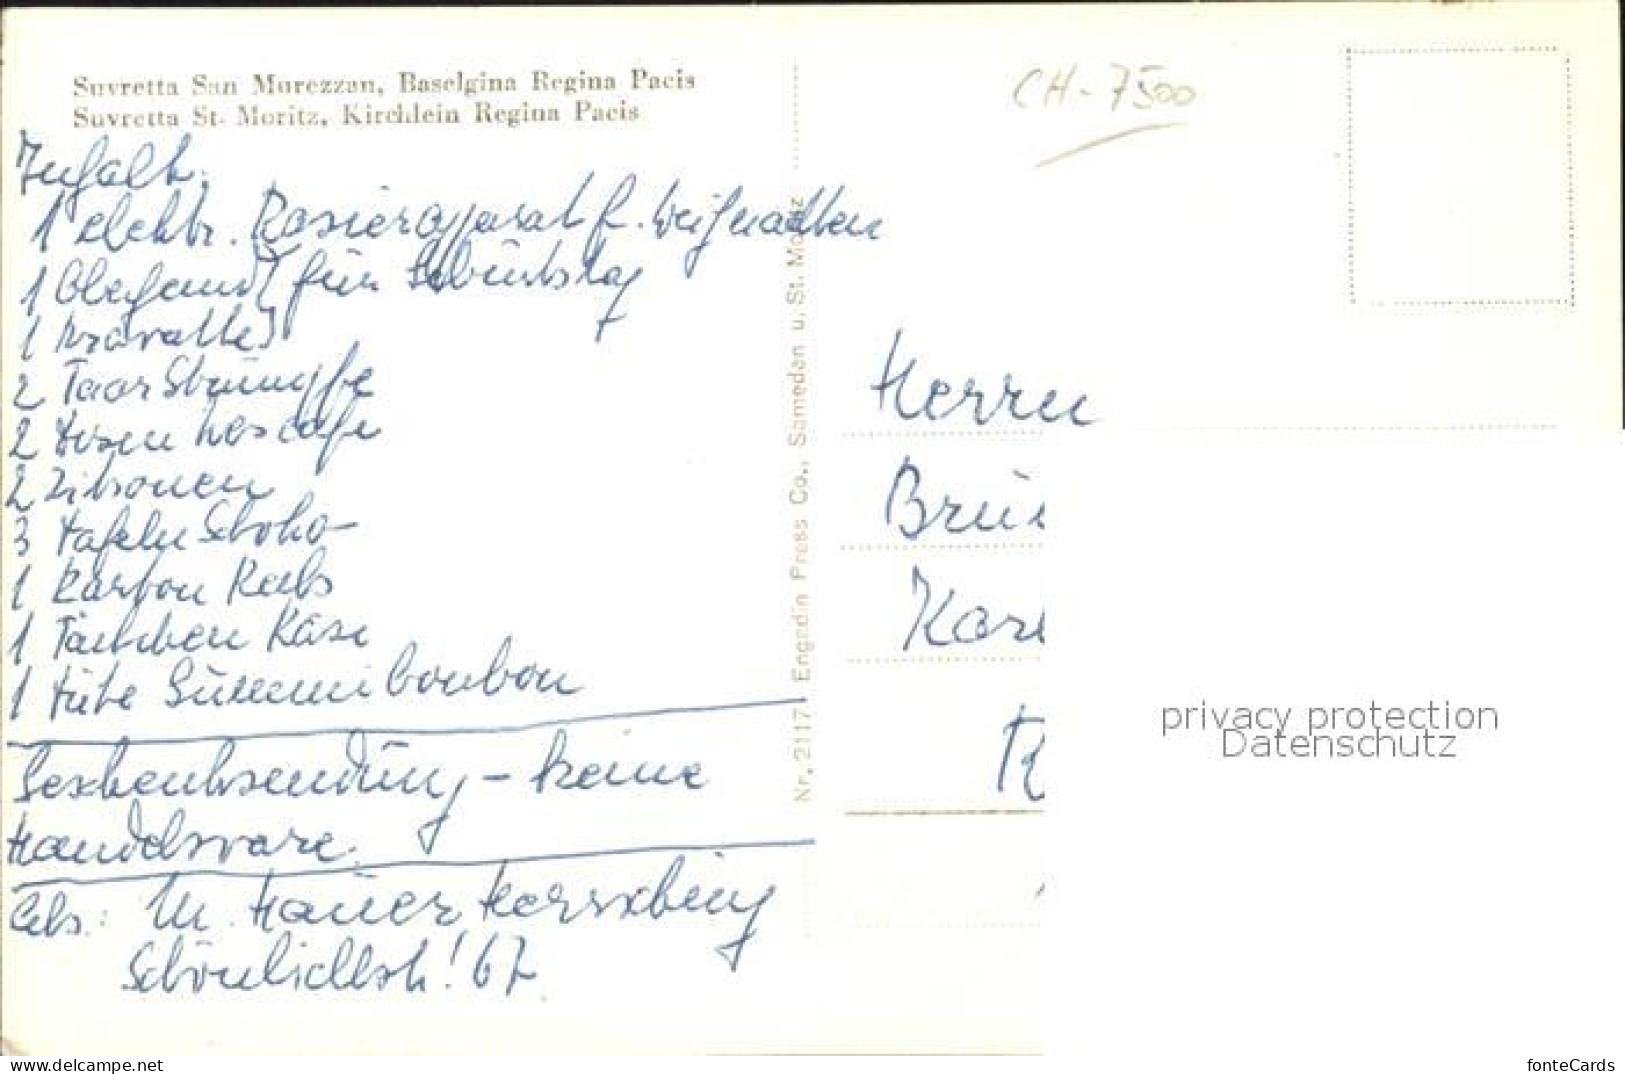 Suvretta San Murezzan, Baselgina Regina Pacis
Suvretta St. Moritz, Kirchlein Regina Pacis
CH-7500
Inhalt:
1 elektr. Rasierapparat f. Weihnachten
1 Oberhemd } für Geburtstag
1 Kravatte }
2 Paar Strümpfe
2 Dosen Nescafe
2 Zitronen
3 Tafeln Schoko-
1 Karton Keks
1 Käse
1 Tüte bonbon
Geschenksendung - keine
Handelsware.
Abs.: M.
67
Nr. 2117 Engadin Press Co., Samedan u. St. Moritz
Herrn
privacy protection
Datenschutz
www.delcampe.net
fonteCards